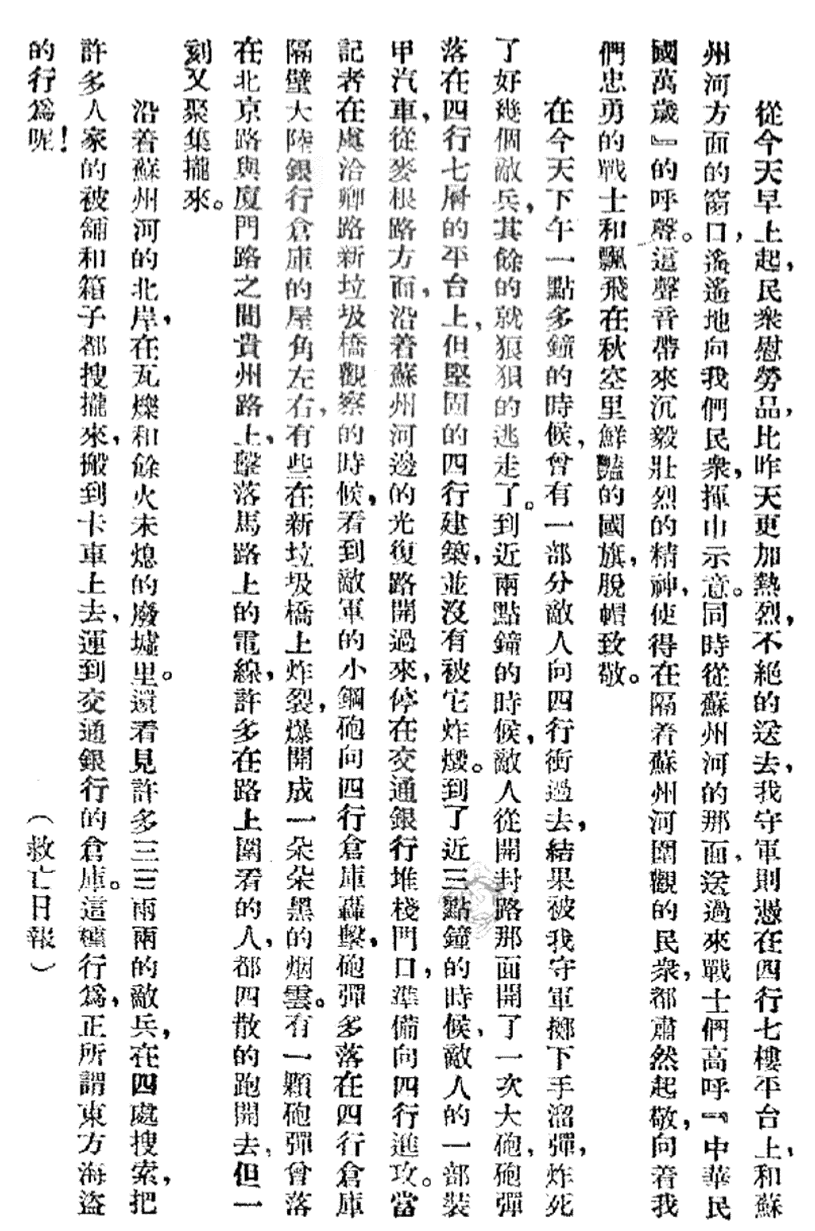 從今天早上起，民衆慰勞品，比昨天更加熱烈，不絕的送去，我守軍則憑在四行七樓平台上，和蘇
州河方面的窗口，遙遙地向我們民衆，揮巾示意。同時從蘇州河的那面，送過來戰士們高呼『中華民
國萬歲』的呼聲。這聲音帶來沉毅壯烈的精神，使得在隔着蘇州河圍觀的民衆，都肅然起敬，向着我
們忠勇的戰士和飄飛在秋空里鮮豔的國旗，脫帽致敬。
在今天下午一點多鐘的時候，曾有一部分敵人向四行衝過去，結果被我守軍擲下手溜彈，炸死
了好幾個敵兵，其餘的就狼狽的逃走了。到近兩點鐘的時候，敵人從開封路那面開了一次大砲，砲彈
落在四行七層的平台上，但堅固的四行建築，並沒有被它炸燬。到了近三點鐘的時候，敵人的一部裝
甲汽車，從麥根路方面，沿着蘇州河邊的光復路開過來，停在交通銀行堆棧門口，準備向四行進攻。當
記者在虞洽卿路新垃圾橋觀察的時候，看到敵軍的小鋼砲向四行倉庫轟擊，砲彈多落在四行倉庫
隔壁大陸銀行倉庫的屋角左右，有些在新垃圾橋上炸裂，爆開成一朵朵黑的烟雲。有一顆砲彈曾落
在北京路與廈門路之間貴州路上，擊落馬路上的電線，許多在路上圍看的人，都四散的跑開去，但一
刻又聚集攏來。
沿着蘇州河的北岸，在瓦爍和餘火未熄的廢墟里。還看見許多三三兩兩的敵兵，在四處搜索，把
許多人家的被舖和箱子都搜攏來，搬到卡車上去，運到交通銀行的倉庫。這種行爲，正所謂東方海盜
的行爲呢！
（救亡日報）